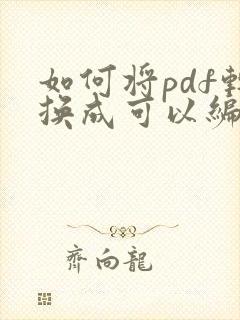 如何将pdf转
换成可以编
齊向龍